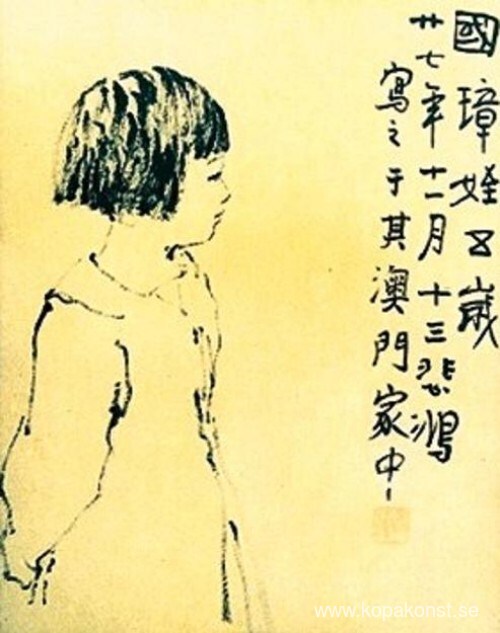 國璋姪五歲
廿七年十一月十三悲鴻
寫之于其澳門家中
www.kopakonst.se